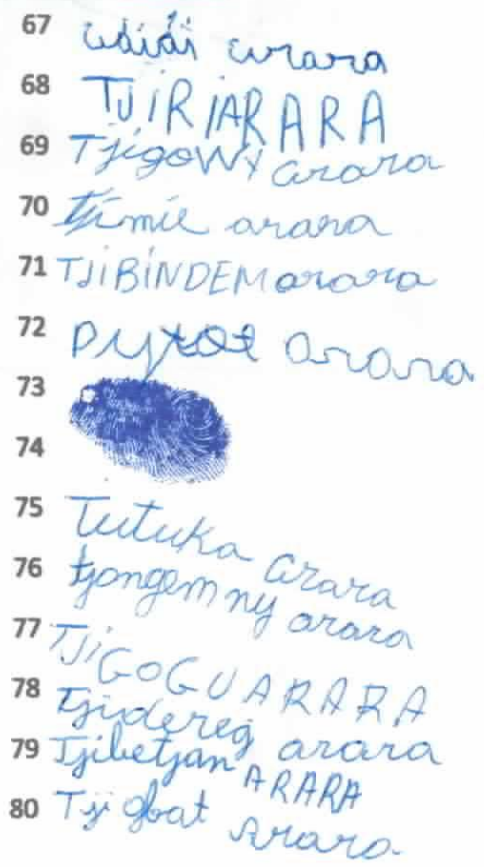 67 Waiai arara
68 TJIRIARARA
69 Tjigowy arara
70 Tjimie arara
71 TJiBiNDEM arara
72 Pytot arara
73
74
75 Tutuka arara
76 tjongem ny arara
77 TJiGOGUARARA
78 Tjidereg arara
79 Tjibetjan ARARA
80 Tji gbat Arara